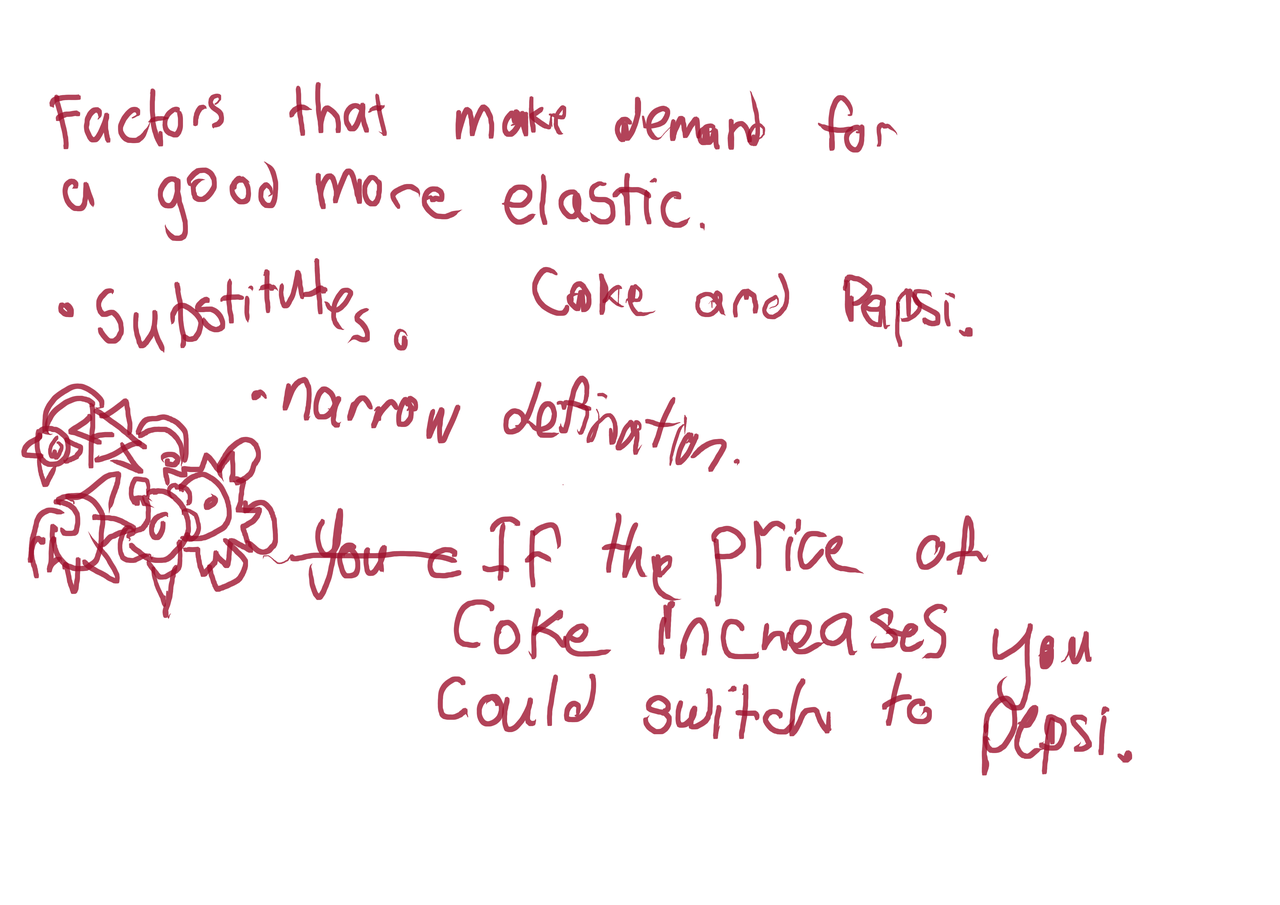 Factors that make demand for
a good more elastic.
• Substitutes. Coke and Pepsi.
• narrow defination.
you c If the price of
Coke increases you
Could switch to pepsi.